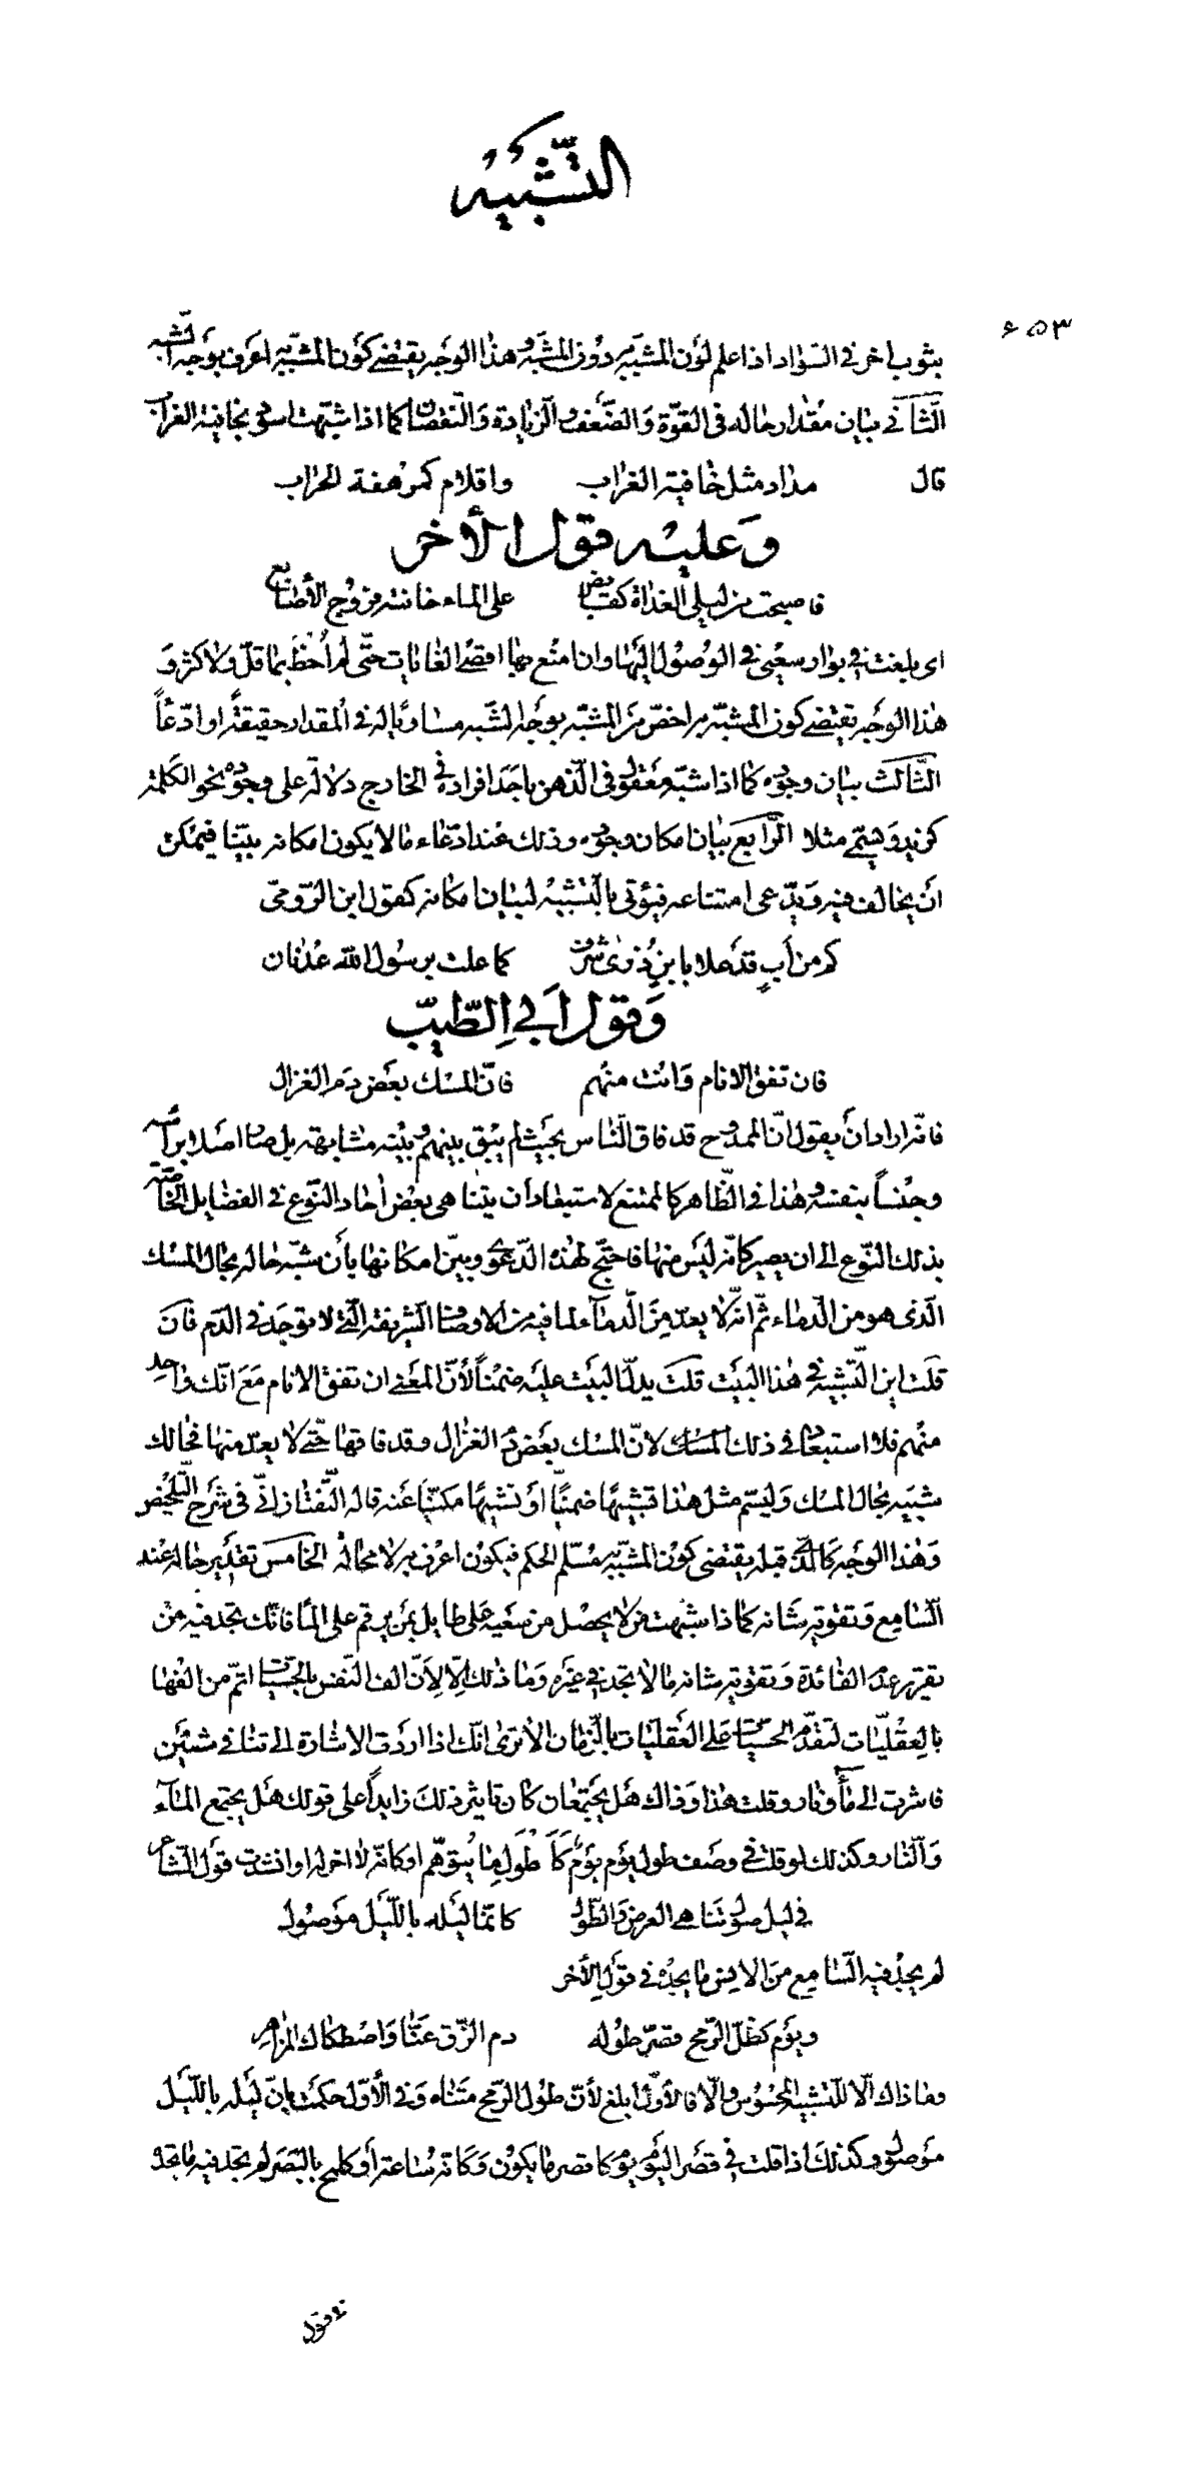 التّشبيه
۶۵۳
بثوب اخر في السّواد اذا علم لون المشبّه به دون المشبّه و هذا الوجه يقتضي كون المشبّه به اعرف بوجه الشّبه
الثّاني بيان مقدار حاله في القوّة و الضّعف و الزيادة و النّقصان كما اذا شبّهت اسود بخافية الغراب
قال مداد مثل خافية الغراب واقلام كمرهفة الحراب
و عليه قول الأخر
فاصبحت من ليلى الغداة كقابض على الماء خانته فروج الأصابع
اى بلغت في بوار سعيي في الوصول اليها و ان امتع بها اقصى الغايات حتّى لم أحظ بما قلّ ولا كثر و
هذا الوجه يقتضي كون المشبّه به اخصّ من المشبّه بوجه الشّبه مساويا له في المقدار حقيقةً او ادّعاً
الثّالث بيان وجوده كما اذا شبّه معقول في الذّهن باحد افراده في الخارج دلالة على وجوده نحو الكلمة
كزيد و يسمّى مثلا الرّابع بيان امكان وجوده و ذلك عند ادّعاء ما لا يكون امكانه بيّنا فيمكن
أن يخالف فيه و يدّعى امتناعه فيؤتى بالتّشبيه لبيان امكانه كقول ابن الرّوميّ
كم من أبٍ قد علا بابن ذرى شرف كما علت برسول اللّه عدنان
و قول أبي الطّيّب
فان تفق الانام و انت منهم فانّ المسك بعض دم الغزال
فانّه اراد أن يقول انّ الممدوح قد فاق النّاس بحيث لم يبق بينهم و بينه مشابهة بل صار اصلا برأسه
و جنساً بنفسه و هذا في الظّاهر كالممتنع لاستبعاد ان يتناهى بعض أحاد النّوع في الفضايل الخاصّة
بذلك النّوع الى ان يصير كانّه ليس منها فاحتجّ لهذه الدّعوى و بيّن امكانها بأن شبّه حاله بحال المسك
الّذى هو من الدّماء ثمّ انّه لا يعدّ من الدّمآء لما فيه من الاوصاف الشّريفة الّتي لا توجد في الدّم فان
قلت اين التّشبيه في هذا البيت قلت يدلّ البيت عليه ضمناً لأنّ المعنى ان تفق الانام مع انّك واحد
منهم فلا استبعاد في ذلك لانّ المسك بعض دم الغزال و قد فاقها حتّى لا يعدّ منها فحالك
شبيه بحال المسك و ليسمّ مثل هذا تشبيها ضمنيّاً أو تشبيها مكنيّا عنه قاله التّفتازانيّ في شرح التّلخيص
و هذا الوجه كالّذي قبله يقتضى كون المشبّه به مسلّم الحكم فيكون اعرف به لا محالة الخامس تقرير حاله عند
السّامع و تقوية شانه كما اذا شبّهت من لا يحصل من سعيه على طايل بمن يرقم على الماء فانّك تجد فيه من
تقرير عدم الفائدة و تقوية شانه ما لا تجد في غيره و ما ذلك الّا لأنّ الف النّفس بالحسّيّات اتمّ من الفها
بالعقليّات لتقدّم الحسّيّات على العقليّات بالزّمان الا ترى انّك اذا اردت الاشارة الى تنافي شيئين
فاشرت الى مآء و نار و قلت هذا و ذاك هل يجتمعان كان تاثير ذلك زايداً على قولك هل يجتمع المآء
و النّار و كذلك لو قلت في وصف طول يوم يوم كأطول ما يتوهّم او كانّه لا اخر له او انشدت قول الشّاعر
في ليل صول تناهى العرض و الطّول كانّما ليله باللّيل موصول
لم يجد فيه السّامع من الانس ما يجده في قول الأخر
و يوم كظلّ الرّمح قصّر طوله دم الزّقّ عنّا و اصطكاك المزاهر
و ما ذاك الّا للتّشبيه بالمحسوس و الّا فالاوّل ابلغ لأنّ طول الرّمح متناه و في الأوّل حكمت بانّ ليله باللّيل
موصول و كذلك اذا قلت في قصر اليوم يوم كاقصر ما يكون و كانّه ساعة أو كلمح بالبصر لم تجد فيه ما تجده